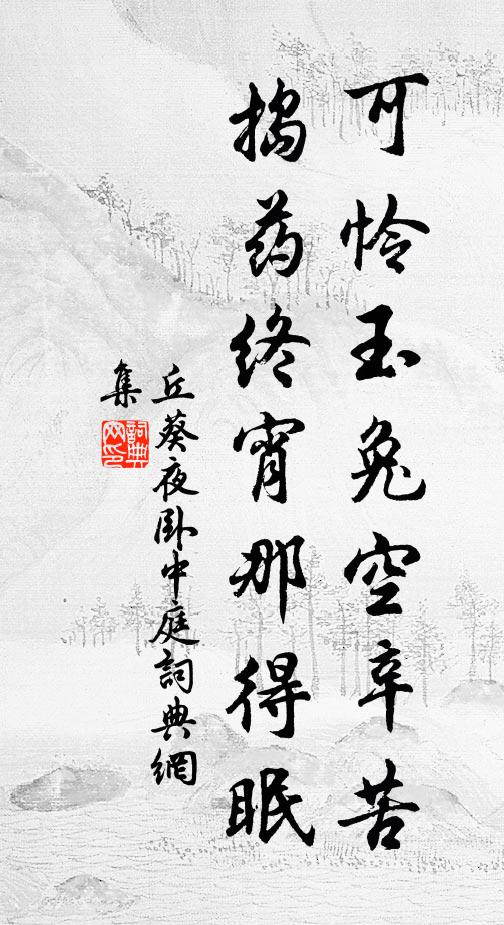 可怜玉兔空辛苦
捣药终宵那得眠
丘葵夜卧中庭詞典網
集
詞典
网印